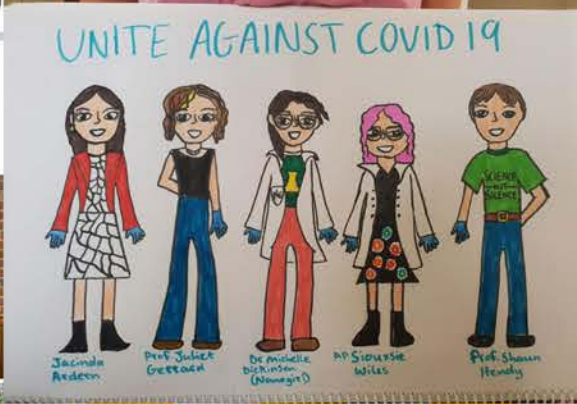 UNITE AGAINST COVID 19
SCIENCE
NOT
SILENCE
Jacinda
Ardern
Prof. Juliet
Gerrard
Dr Michelle
Dickinson
(Nanogirl)
AP Siouxsie
Wiles
Prof. Shaun
Hendy